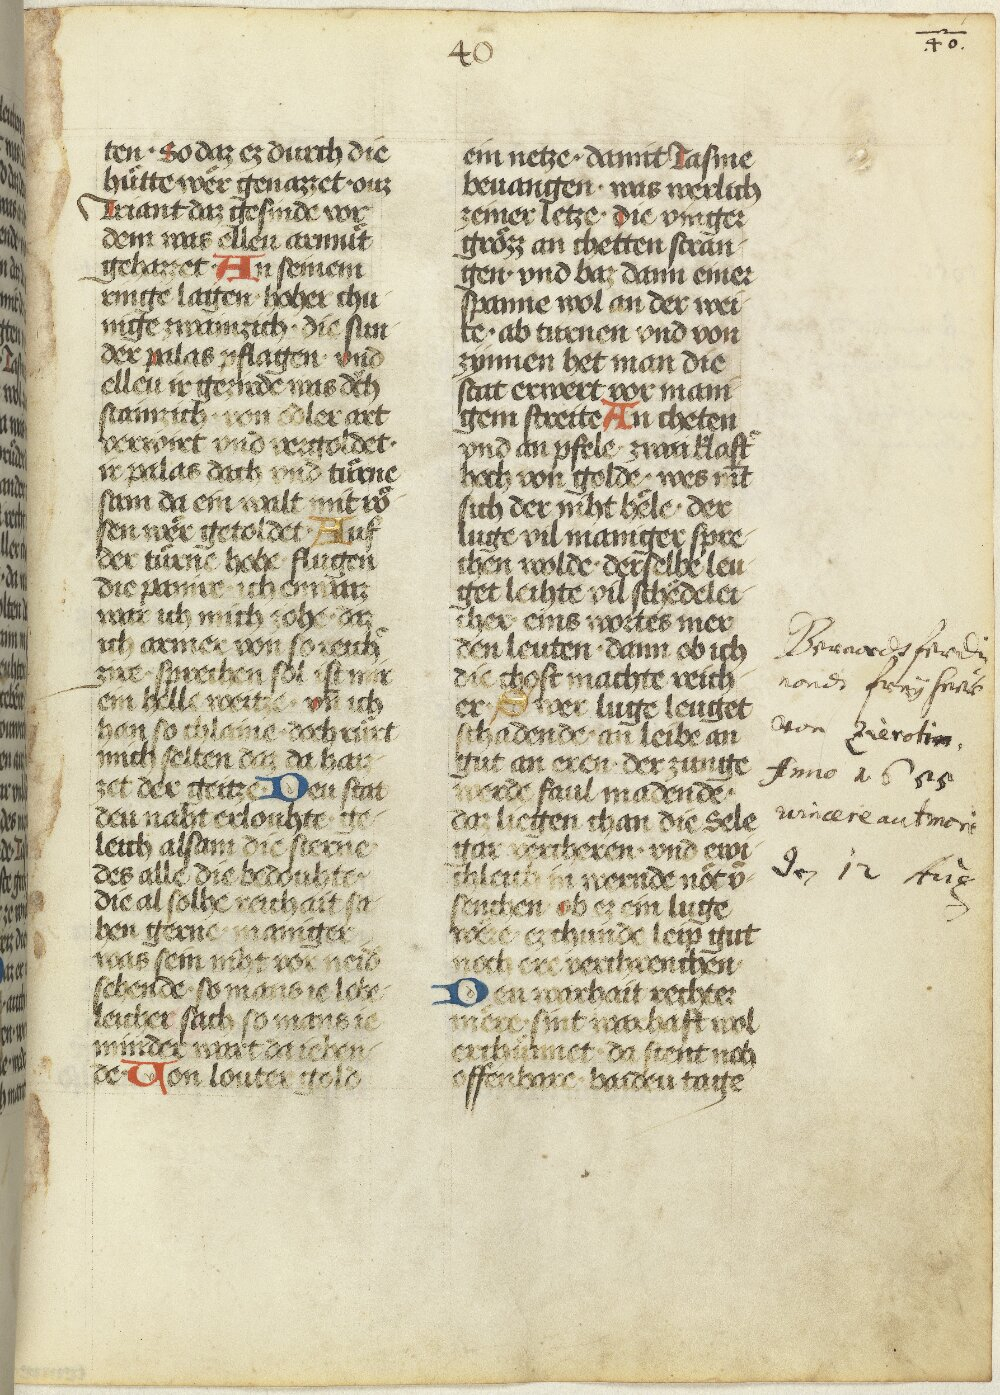 40
40.
ten · So daz ez durch die
hütte wër genazzet · ouz
Triant daz gesinde vor
dem was elleu armüt
gehazzet · An seinem
ringe lagen · hoher chu-
nige zwainzich · die sun-
der palas pflagen · vnd
elleu ir gezirde was
von edler art
verwirt vnd vergoldet ·
ir palas dach vnd türne
sam da ein walt mit rö-
sen wër getoldet · Auf
der türne hohe · flugen
die panire · ich
war ich mich zohe · daz
ich armer von so reich
zire · sprechen sol ist mir
ein helle weitze · vn ich
han so chlaine · doch rürt
mich selten daz da hai-
zet der geitze · Deu stat
deu naht erlouhte · ge-
leich alsam die sterne ·
des alle die bedouhte ·
die al solhe reichait sa-
hen gerne · maniger
was sein niht vor neid
sehende · so mans ie lobe-
leicher sach so mans ie
minder wart da iehen-
de · Von louter gold
ein netze · damit Tasme
beuangen · was werlich
zeiner letze · die vinger
grözz an chetten stran-
gen · vnd baz dann einer
spanne wol an der wei-
te · ab turnen vnd von
zynnen het man die
stat erwert vor mani-
gem streite An cheten
vnd an pfele · zwai klaft
hoch von golde · wes mit
sich der niht hële · der
luge vil maniger spre-
chen wolde · derselbe leu-
get leihte vil schedelei-
cher · eins wortes mer
den leuten · dann ob ich
die chost machte reich-
er · Swer luge leuget
schadende · an leibe an
gut an eren · der zunge
werde faul madende ·
daz liegen chan die Sele
gar verheren · vnd ewi-
chleich in wernde nöt v-
senchen · ob ez ein luge
were · ez chunde leip gut
noch ere verchrenchen ·
Deu warhait rechter
mere · sint warhaft wol
erchennet · da stent noch
offenbare · baideu tage
Bernards ferdi
nonds freÿhers
von Zierotin.
Anno 1655
vincere aut mori
12 Aug